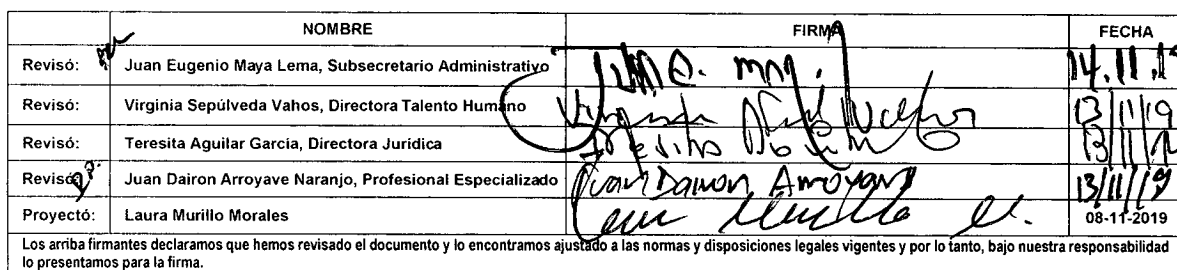 NOMBRE FIRMA FECHA
Revisó: Juan Eugenio Maya Lema, Subsecretario Administrativo 14.11.1
Revisó: Virginia Sepúlveda Vahos, Directora Talento Humano Virginia 13/11/19
Revisó: Teresita Aguilar García, Directora Jurídica Teresita 13/11/1
Revisó: Juan Dairon Arroyave Naranjo, Profesional Especializado Juan Dairon Arroyave 13/11/19
Proyectó: Laura Murillo Morales Laura Murillo M. 08-11-2019
Los arriba firmantes declaramos que hemos revisado el documento y lo encontramos ajustado a las normas y disposiciones legales vigentes y por lo tanto, bajo nuestra responsabilidad
lo presentamos para la firma.